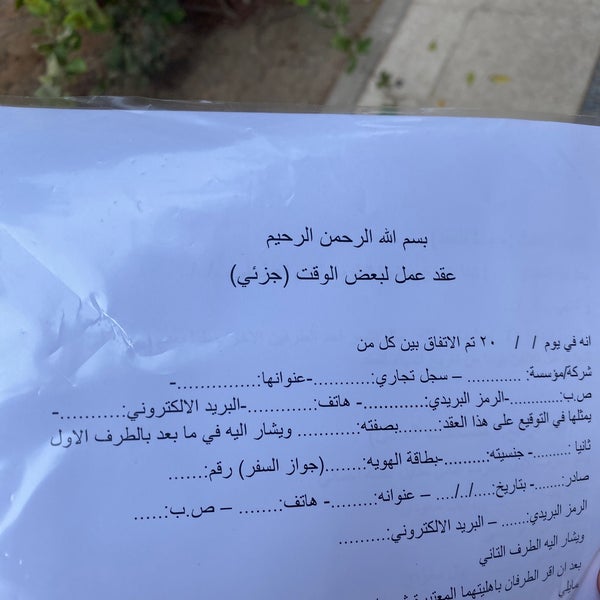 بسم الله الرحمن الرحيم
عقد عمل لبعض الوقت (جزئي)
انه في يوم / / ٢٠ تم الاتفاق بين كل من
شركة/مؤسسة: ............ – سجل تجاري:...........-عنوانها:...............-
ص.ب:...........-الرمز البريدي:............- هاتف:.............-البريد الالكتروني:............-
يمثلها في التوقيع على هذا العقد:........بصفته:.......... ويشار اليه في ما بعد بالطرف الاول
ثانيا :..........- جنسيته:.........-بطاقة الهويه:.......(جواز السفر) رقم:......
صادر:.......- بتاريخ:..../../.... – عنوانه:.........- هاتف:........ – ص.ب:.....
الرمز البريدي:...... – البريد الالكتروني:..........
ويشار اليه الطرف الثاني
بعد ان اقر الطرفان باهليتهما المعتبرة
مايلي